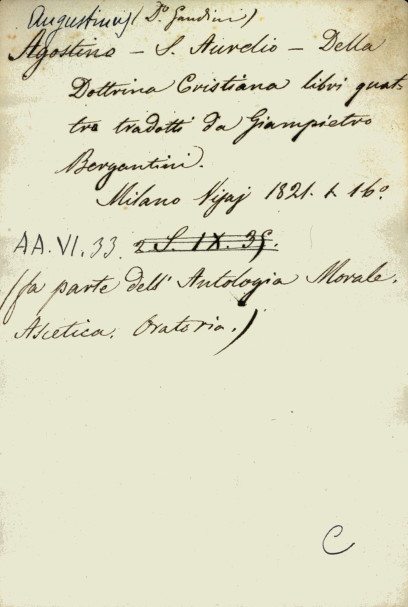 Augustinus (Do. Gandini)
Agostino – S. Aurelio – Della
Dottrina Cristiana libri quat-
tro tradotti da Giampietro
Bergantini.
Milano Nijaj 1821. t. 16o.
AA.VI.33. S. IX. 35.
(fa parte dell' Antologia Morale.
Ascetica. Oratoria.)
C